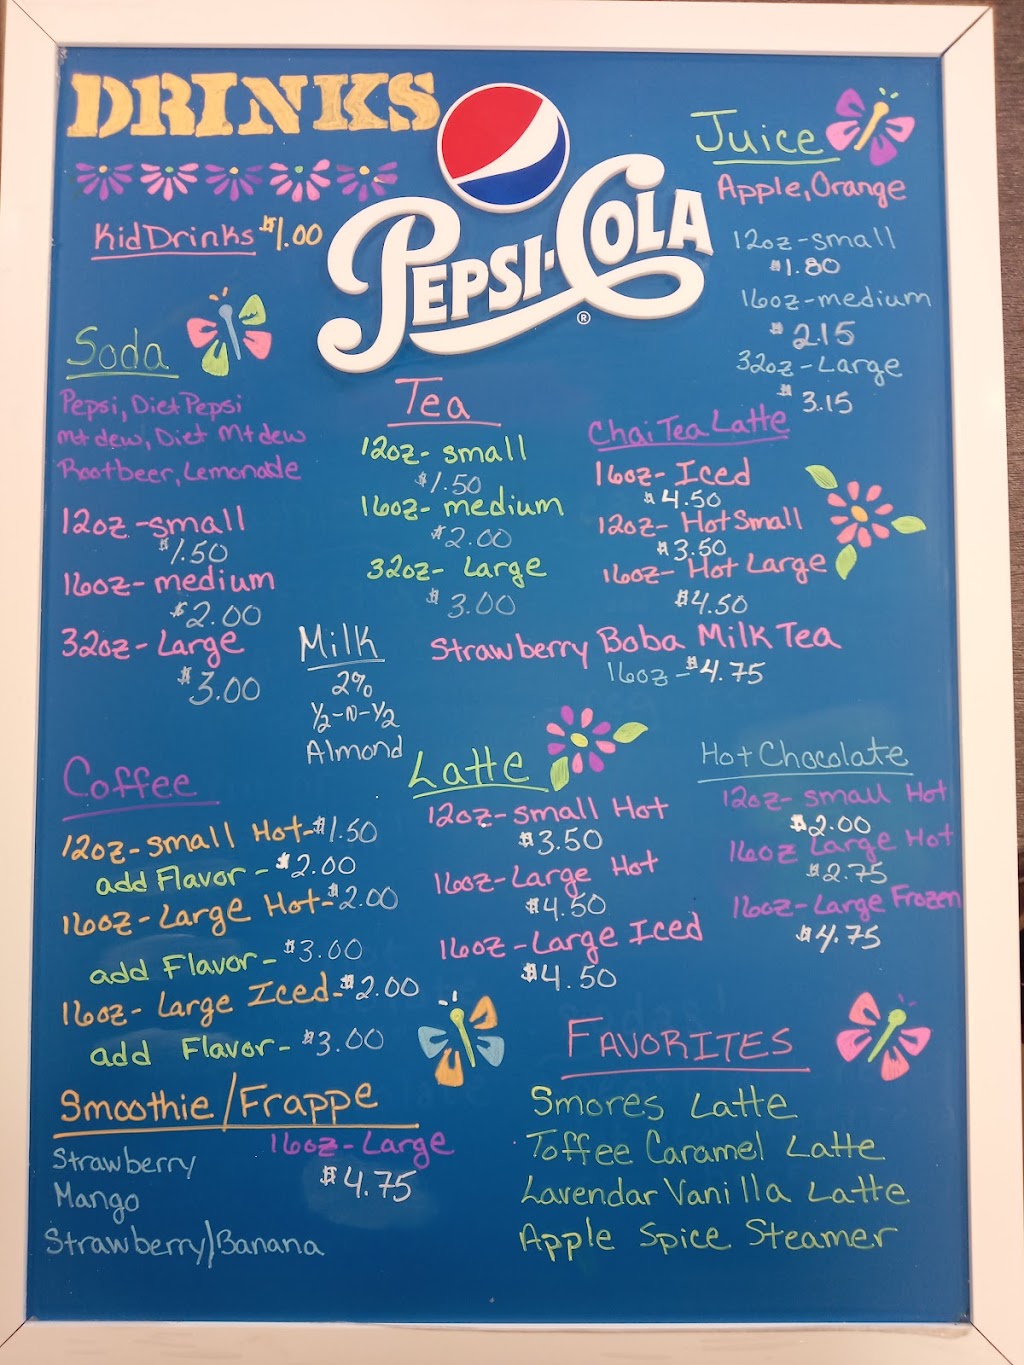 DRINKS
Kid Drinks $1.00
PEPSI-COLA
®
Juice
Apple, Orange
12oz-small
$1.80
16oz-medium
$2.15
32oz-Large
$3.15
Soda
Pepsi, Diet Pepsi
mt dew, Diet Mt dew
Rootbeer, Lemonade
12oz-small
$1.50
16oz-medium
$2.00
32oz-Large
$3.00
Tea
12oz-small
$1.50
16oz-medium
$2.00
32oz-Large
$3.00
Chai Tea Latte
16oz-Iced
$4.50
12oz-Hot Small
$3.50
16oz-Hot Large
$4.50
Strawberry Boba Milk Tea
16oz-$4.75
Milk
2%
½-N-½
Almond
Coffee
12oz-small Hot-$1.50
add Flavor-$2.00
16oz-Large Hot-$2.00
add Flavor-$3.00
16oz-Large Iced-$2.00
add Flavor-$3.00
Latte
12oz-small Hot
$3.50
16oz-Large Hot
$4.50
16oz-Large Iced
$4.50
Hot Chocolate
12oz-small Hot
$2.00
16oz Large Hot
$2.75
16oz-Large Frozen
$4.75
Smoothie/Frappe
16oz-Large
$4.75
Strawberry
Mango
Strawberry/Banana
FAVORITES
Smores Latte
Toffee Caramel Latte
Lavendar Vanilla Latte
Apple Spice Steamer